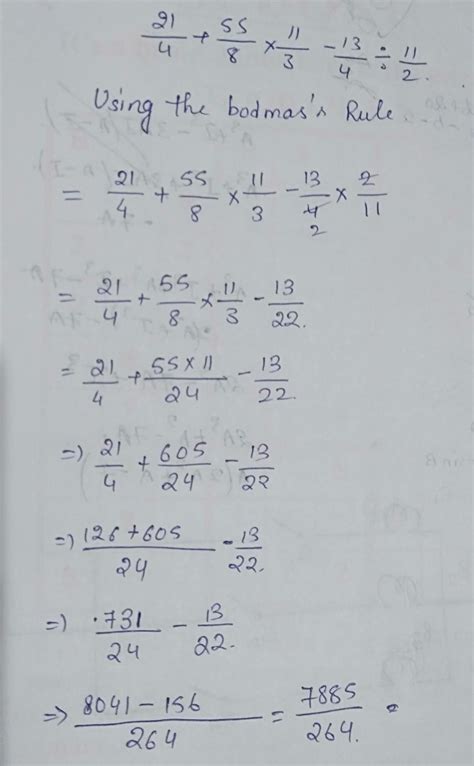 21/4 + 55/8 × 11/3 - 13/4 ÷ 11/2.
Using the bodmas's Rule
= 21/4 + 55/8 × 11/3 - 13/4 × 2/11
2
= 21/4 + 55/8 × 11/3 - 13/22.
= 21/4 + 55×11/24 - 13/22.
=) 21/4 + 605/24 - 13/22
=) 126+605/24 - 13/22.
=) .731/24 - 13/22.
=> 8041-156/264 = 7885/264. =